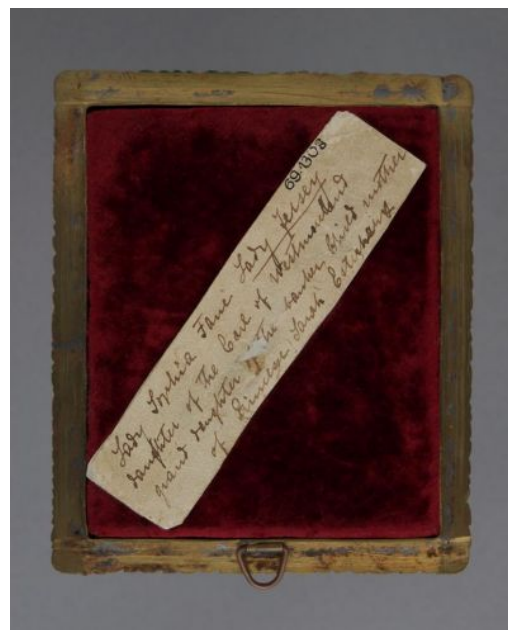 69.1303
Lady Sophia Fane Lady Jersey
daughter of The Earl of Westmorland
grand daughter of The banker Child mother
of Princess Sarah Esterhazy